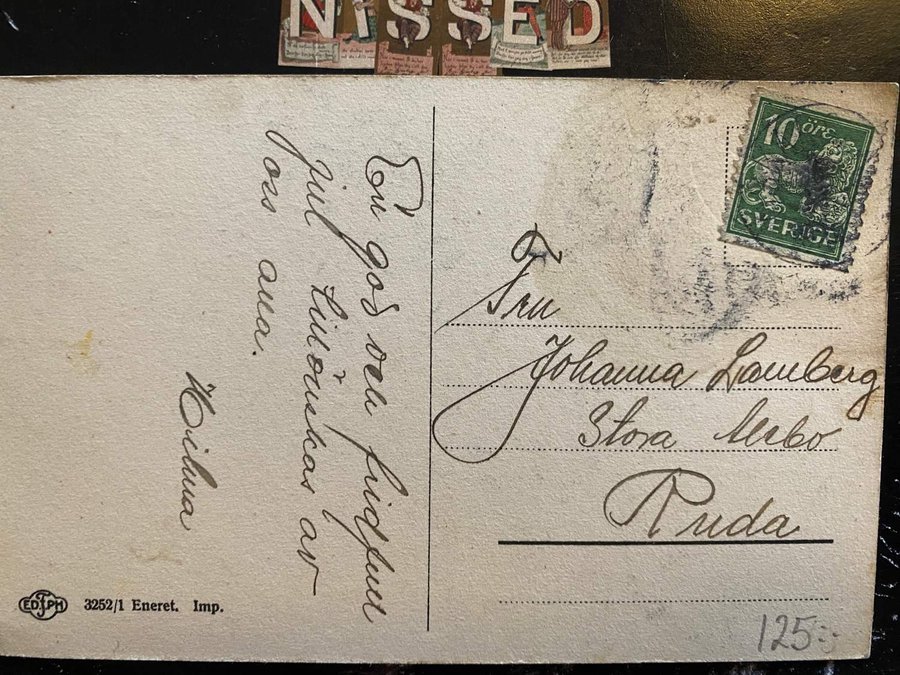 NISSED
En god och fridfull
jul tillönskas av
oss alla.
Hilma
10 öre
SVERIGE
Fru
Johanna Lamberg
Stora Aerbo
Ruda
EDFPH 3252/1 Eneret. Imp.
125:-